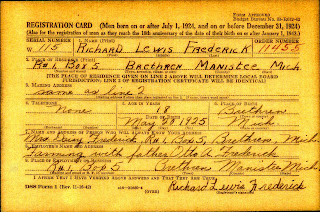 REGISTRATION CARD—(Men born on or after July 1, 1924, and on or before December 31, 1924)
(Also for the registration of men as they reach the 18th anniversary of the date of their birth on or after January 1, 1925.)
SERIAL NUMBER 1. NAME (Print) ORDER NUMBER
W 115 Richard Lewis Frederick 11455
2. PLACE OF RESIDENCE (Print)
R#1 Box 5 Brethren Manistee Mich
[THE PLACE OF RESIDENCE GIVEN ON LINE 2 ABOVE WILL DETERMINE LOCAL BOARD
JURISDICTION; LINE 2 OF REGISTRATION CERTIFICATE WILL BE IDENTICAL]
3. MAILING ADDRESS
Same as line 2
4. TELEPHONE 5. AGE IN YEARS 6. PLACE OF BIRTH
None 18 Brethren
DATE OF BIRTH
May 28 1925 Mich
7. NAME AND ADDRESS OF PERSON WHO WILL ALWAYS KNOW YOUR ADDRESS
Mrs. Daisy Frederick, R#1, Box 5, Brethren, Mich.
8. EMPLOYER'S NAME AND ADDRESS
Farming with father Otto A. Frederick
9. PLACE OF EMPLOYMENT OR BUSINESS
R#1 Box 5 Brethren Manistee Mich.
I AFFIRM THAT I HAVE VERIFIED ABOVE ANSWERS AND THAT THEY ARE TRUE.
DSS Form 1 (Rev. 11-16-42)
Richard Lewis Frederick